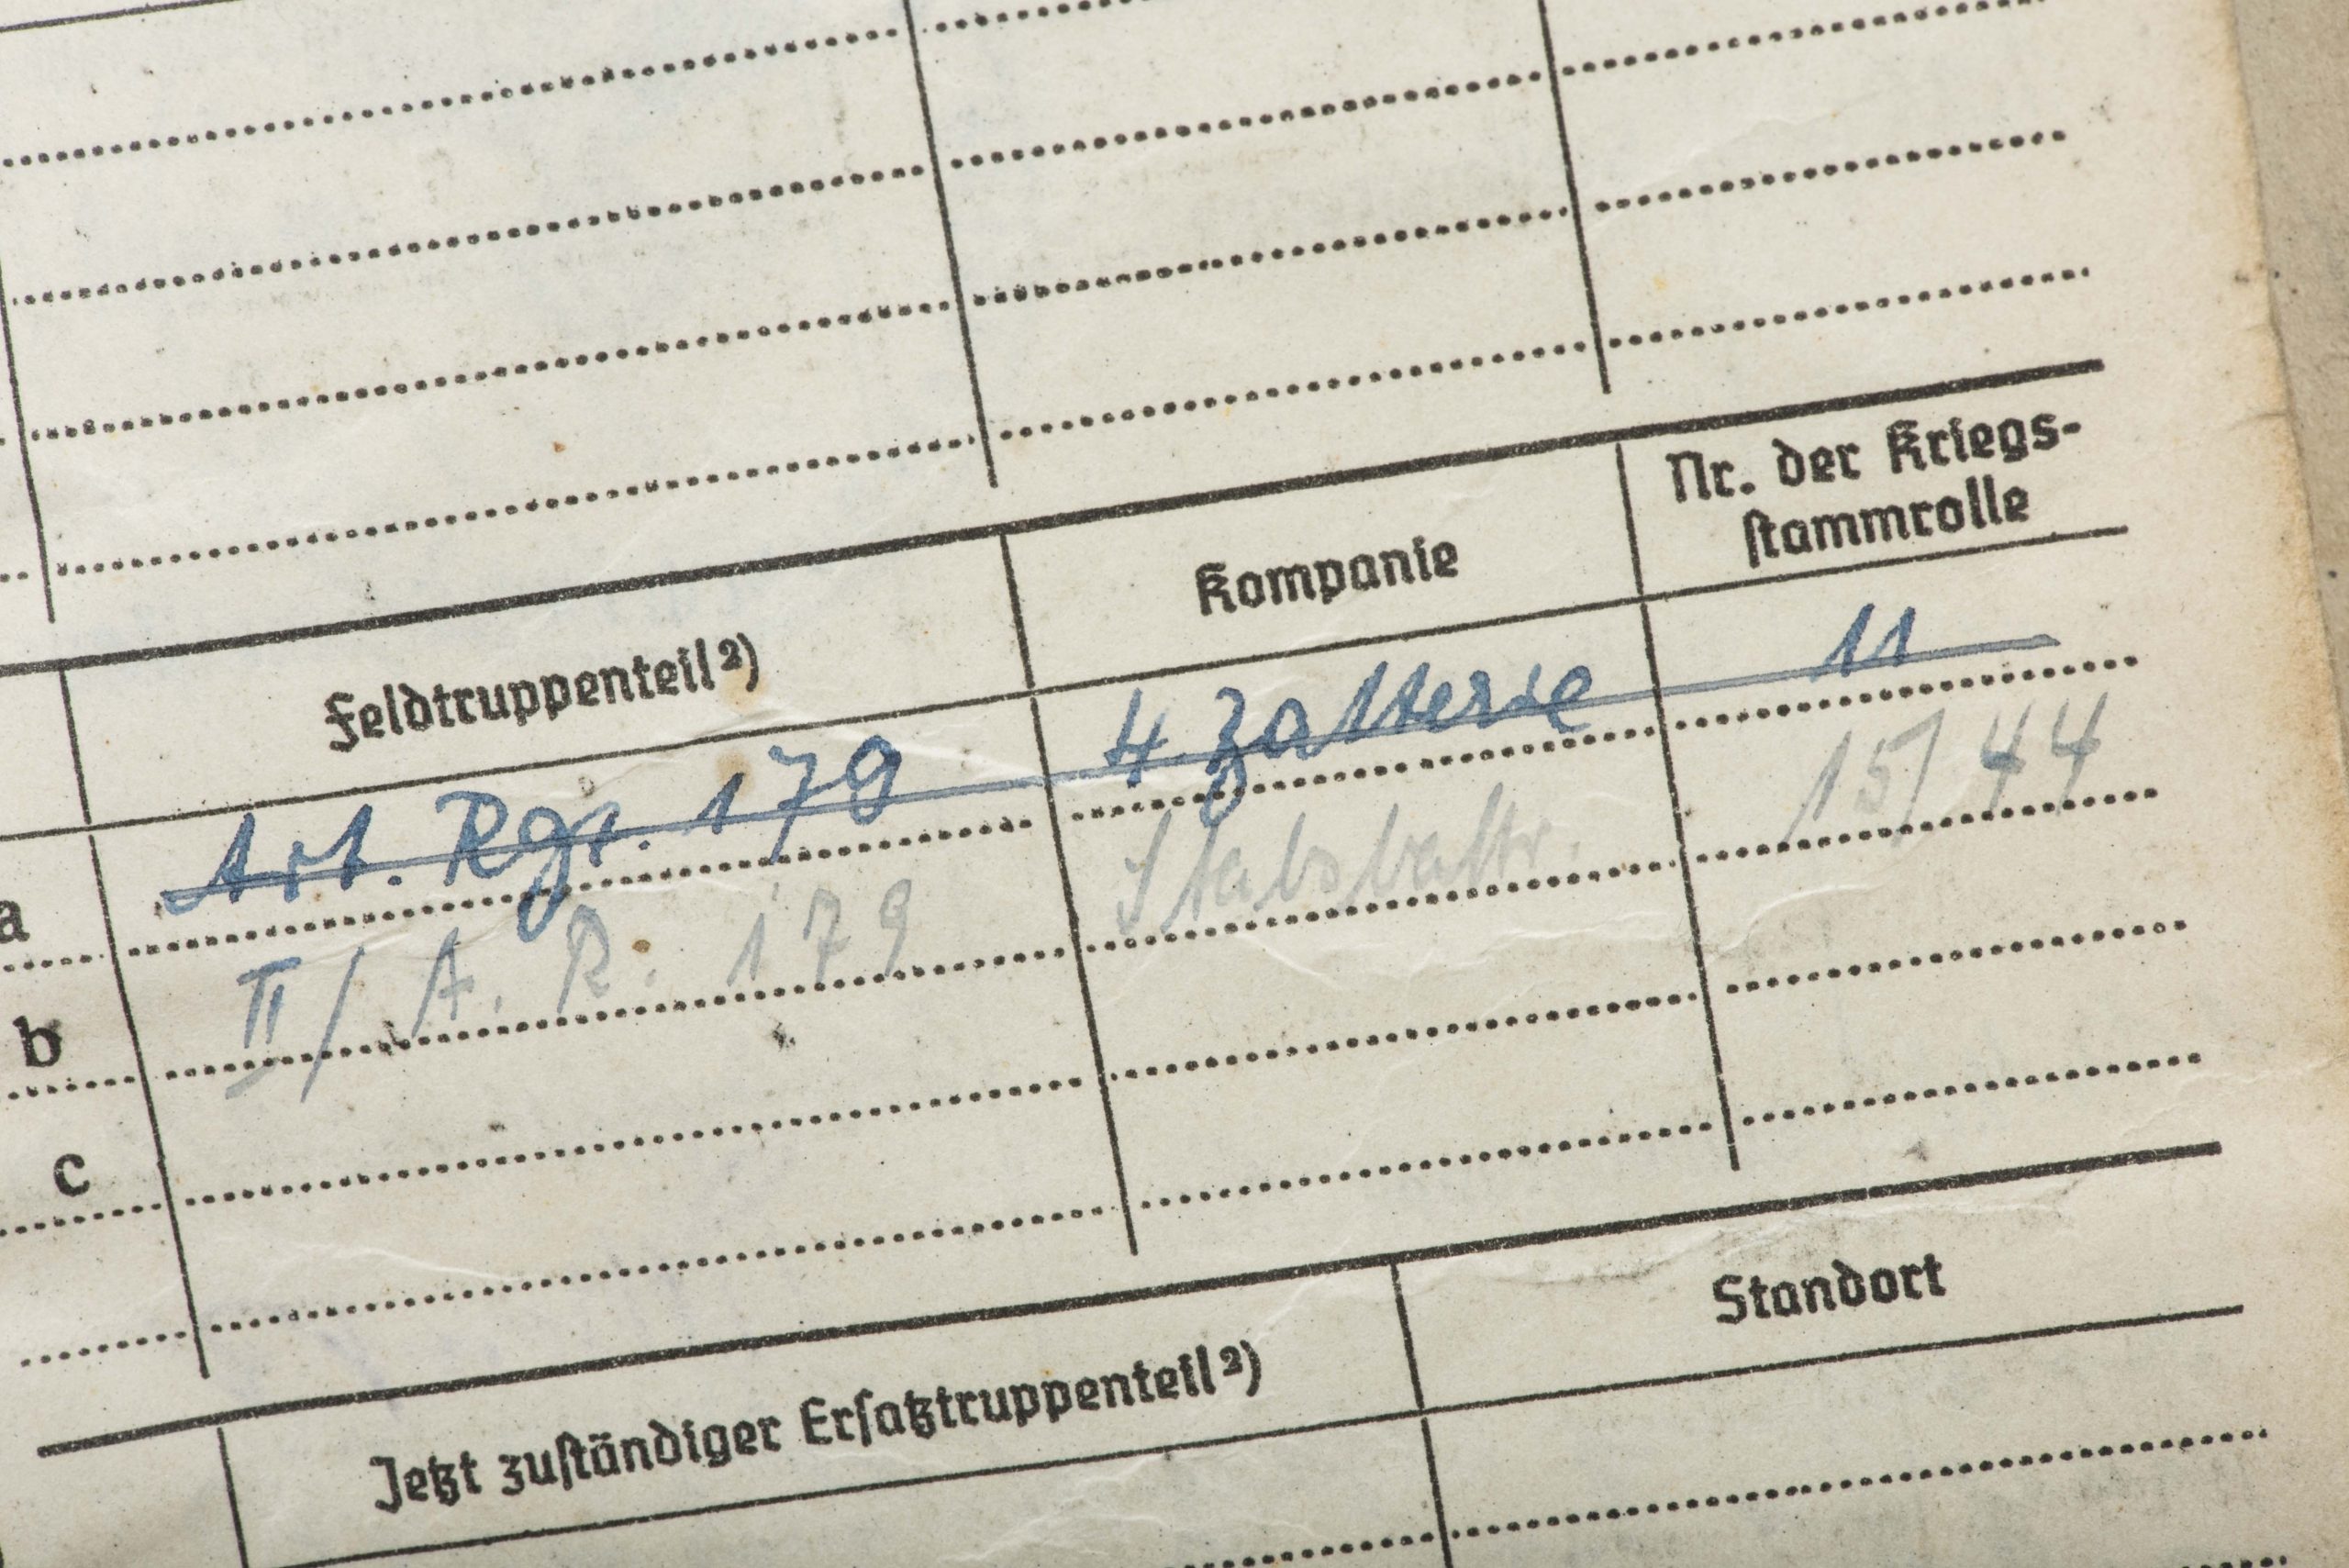 Feldtruppenteil²) Kompanie Nr. der Kriegs-
stammrolle
a Art. Rgt. 179 4 Batterie 11
b II/ A. R. 179 Stabsbattr. 15/44
c
Jetzt zuständiger Ersatztruppenteil²) Standort